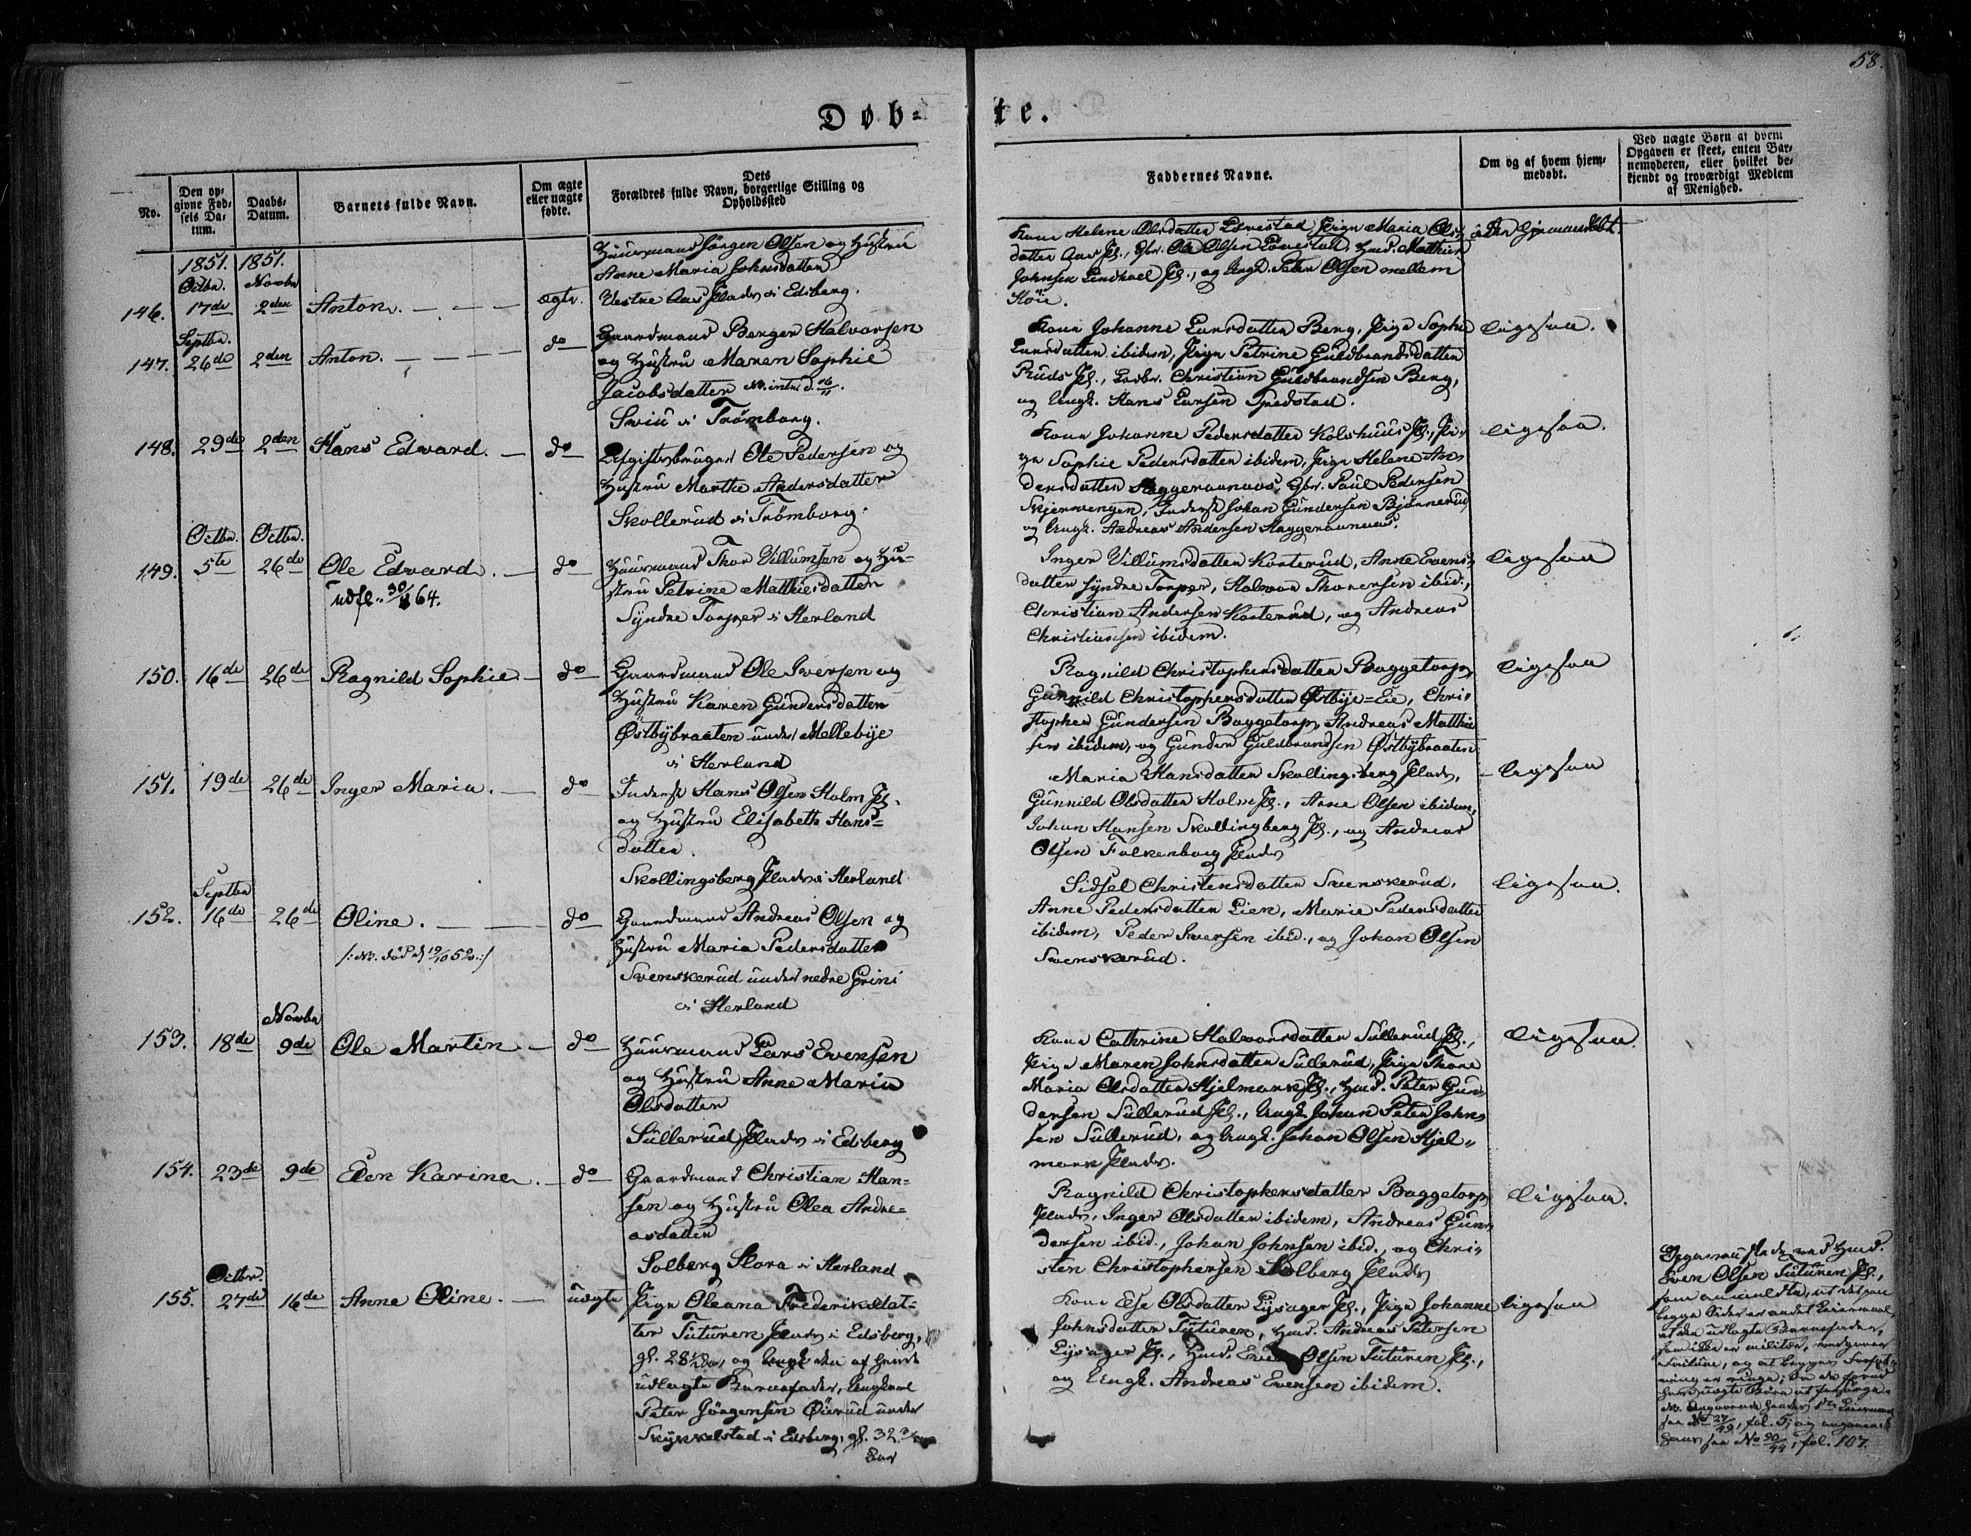 58.
Døb-
te.
No.
Den op-
givne Fød-
sels Da-
tum.
Daabs-
Datum.
Barnets fulde Navn.
Om ægte
eller uægte
fødte.
Dets
Forældres fulde Navn, borgerlige Stilling og
Opholdssted
Faddernes Navne.
Om og af hvem hjem-
medøbt.
Ved uægte Børn af hvem
Opgaven er skeet, enten Bar-
nemoderen, eller hvilket be-
kjendt og troværdigt Medlem
af Menighed.
1851. 1851.
Octbr. Novbr
146. 17de 2den Anton. ægte.
Huusmand Jörgen Olsen og Hustru
Anne Maria Johnsdatter
Vestre Aas Plads i Edsberg.
Kone Helene Olsdatter Lövestad, Pige Maria Ols-
datter Aas Pl., Gbr. Ole Olsen Lövestad, Hmd. Mathias
Johnsen Lindhoel Pl., og Ungk. Peter Olsen mellem
Höie.
ei hjemmedöbt
Septbr.
147. 26de 2den Anton. do
Gaardmand Berger Halvorsen
og Hustru Maren Sophie
Jacobsdatter
Sviu i Trømborg.
Kone Johanne Larsdatter Berg, Pige Sophie
Larsdatter ibidem, Pige Petrine Guldbrandsdatter
Ruds Pl., Christian Guldbrandsen Berg,
og Ungk. Hans Larsen Spedstad.
ligesaa.
148. 29de 2den Hans Edvard. do
Ole Pedersen og
Hustru Marthe Andersdatter
Skollerud i Trømborg.
Kone Johanne Pedersdatter Kolshuus Pl., Pi-
ge Sophie Pedersdatter ibidem, Pige Helene An-
dersdatter Haggeraanaas, Gbr. Paul Pedersen
Skjenvengen, Inderst Johan Gundersen Bjönnerud
og Ungk. Andreas Andersen Haggeraanaas.
ligesaa.
Octbr. Octbr.
149. 5te 26de Ole Edvard. do
udfl. 30/ 64.
Huusmand Thor Villumsen og Hu-
stru Petrine Matthisdatter
Syndre Torper i Herland
Inger Villumsdatter Korterud, Anne Evens-
datter Syndre Torper, Halvor Thoresen ibid.,
Christian Andersen Korterud, og Andreas
Christiansen ibidem.
ligesaa
150. 16de 26de Ragnild Sophie do
Gaardmand Ole Iversen og
Hustru Karen Gundersdatter
Østbybraaten under Mellebye
i Herland
Ragnild Christophersdatter Baggetorp,
Gunnild Christophersdatter Østbye=Eie, Chri-
stopher Gundersen Baggetorp, Andreas Matthi-
sen ibidem, og Gunder Guldbrandsen Østbybraaten
ligesaa
151. 19de 26de Inger Maria. do
Inderst Hans Olsen Holm Pl.
og Hustru Elisabeth Hans=
datter.
Skollingsberg Plads i Herland
Maria Hansdatter Skollingsberg Plads,
Gunnild Olsdatter Holm Pl., Arne Olsen ibidem,
Johan Hansen Skollingberg Pl., og Andreas
Olsen Falkenborg Plads
ligesaa
Septbr
152. 16de 26de Oline. do
/: NB. død d 19/10 52. :/
Gaardmand Andreas Olsen og
Hustru Maria Pedersdatter
Svenskerud under nedre Grini
i Herland
Sidsel Christensdatter Svenskerud,
Anne Pedersdatter Lien, Marie Pedersdatter
ibidem, Peder Iversen ibid., og Johan Olsen
Svenskerud.
ligesaa.
Novbr
153. 18de 9de Ole Martin do
Huusmand Lars Evensen
og Hustru Anne Maria
Olsdatter
Sullerud Plads i Edsberg
Kone Cathrine Halvorsdatter Sullerud Pl.,
Pige Maren Johnsdatter Sullerud, Pige Thore
Maria Olsdatter Hjelmark Pl., Hmd. Peter Gun-
dersen Sullerud Pl., Ungk. Johan Peter John-
sen Sullerud, og Ungk. Johan Olsen Hjel-
mark Plads.
ligesaa.
154. 23de 9de Elen Karine. do
Gaardmand Christian Han-
sen og Hustru Olea Andre-
asdatter
Solberg Store i Herland
Ragnild Christophersdatter Baggetorp
Plads, Inger Olsdatter ibidem, Andreas Gun-
dersen ibid., Johan Johnsen ibid., og Chri-
sten Christophersen Solberg Plads
ligesaa.
Octbr.
155. 27de 16de Anne Oline. uægte
Pige Oleana Frederiksdat-
ter Tuturen Plads i Edsberg,
gl. 28 1/2 Aar, og
udlagte Barnefader, Ungkarl
Peter Jörgensen Öierud under
Skykkelstad i Edsberg, gl. 32
Aar
Kone Else Olsdatter Lysager Pl., Pige Johanne
Johnsdatter Tuturen, Hmd. Andreas Petersen
Lysager Pl., Hmd. Even Olsen Tuturen Pl.,
og Ungk. Andreas Evensen ibidem.
ligesaa
Even Olsen Tuturen Pl.,
som anmeldte, at det paa
begge Sider er andet Leiermaal,
at den udlagte Barnefader,
som ikke er militær,
fol. 5, og angaaende
fol. 107.